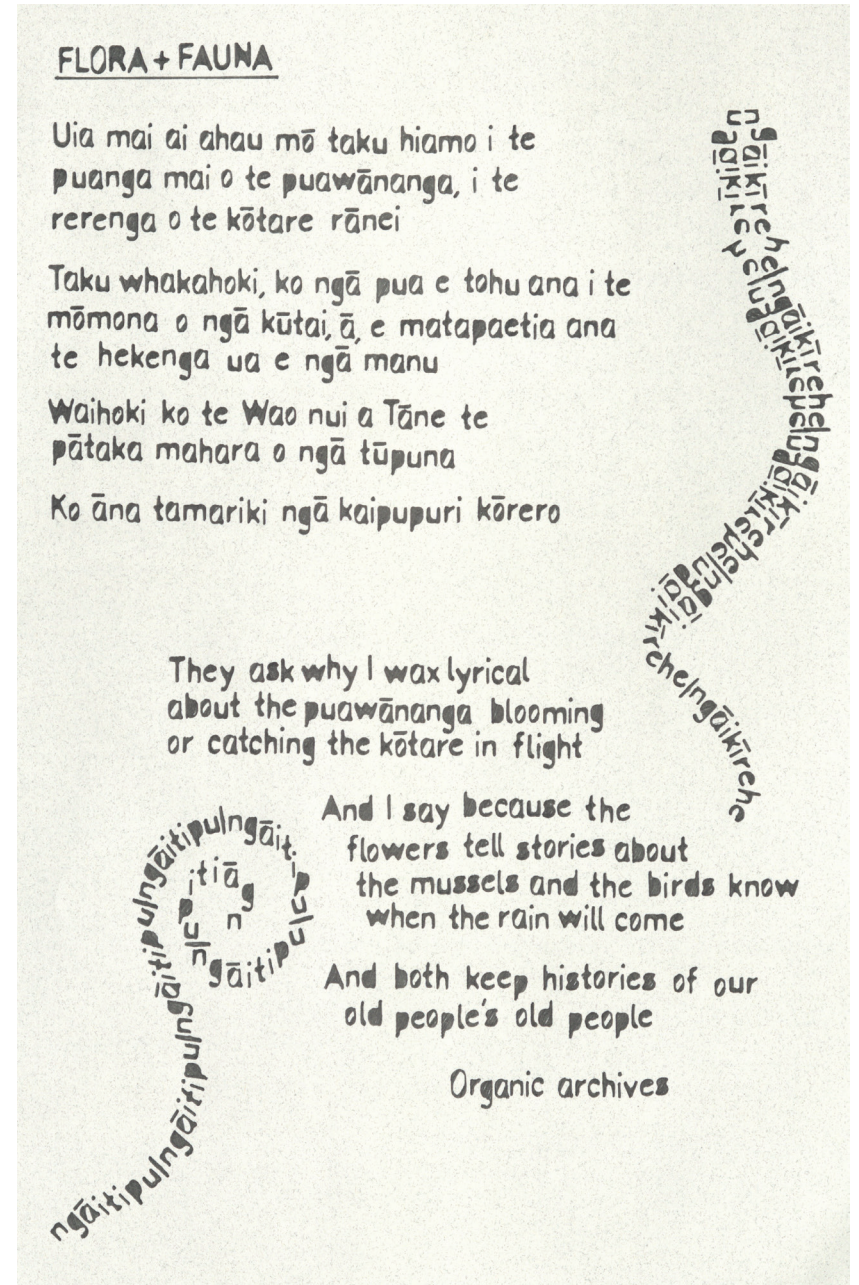 FLORA + FAUNA
Uia mai ai ahau mō taku hiamo i te
puanga mai o te puawānanga, i te
rerenga o te kōtare rānei
Taku whakahoki, ko ngā pua e tohu ana i te
mōmona o ngā kūtai, ā, e matapaetia ana
te hekenga ua e ngā manu
Waihoki ko te Wao nui a Tāne te
pātaka mahara o ngā tūpuna
Ko āna tamariki ngā kaipupuri kōrero
ngāikīrehe|ngāikīrehe|ngāikīrehe|ngāi
ngāikīrehe|ngāikīrehe|ngāikīrehe|ngāikīrehe|ngāikīrehe
They ask why I wax lyrical
about the puawānanga blooming
or catching the kōtare in flight
And I say because the
flowers tell stories about
the mussels and the birds know
when the rain will come
And both keep histories of our
old people's old people
Organic archives
ngāitipu|ngāitipu|ngāitipu|ngāitipu|ngāitipu|ngāitipu|ngāitipu